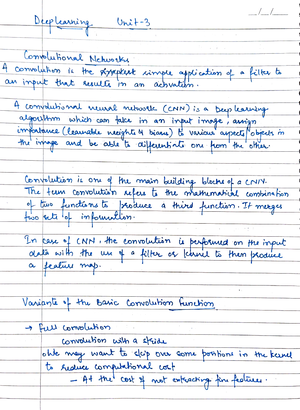 Deeplearning Unit-3
__/__/__
Convolutional Networks
A convolution is the simple application of a filter to
an input that results in an activation.
A convolutional neural network (CNN) is a Deep learning
algorithm which can take in an input image, assign
importance (learnable weights & biases) to various aspects/objects in
the image and be able to differentiate one from the other.
Convolution is one of the main building blocks of a CNN.
The term convolution refers to the mathematical combination
of two functions to produce a third function. It merges
two sets of information.
In case of CNN, the convolution is performed on the input
data with the use of a filter or kernel to then produce
a feature map.
Variants of the Basic Convolution Function
→ Full convolution
Convolution with a stride
One may want to skip over some positions in the kernel
to reduce computational cost
- At the cost of not extracting fine features.